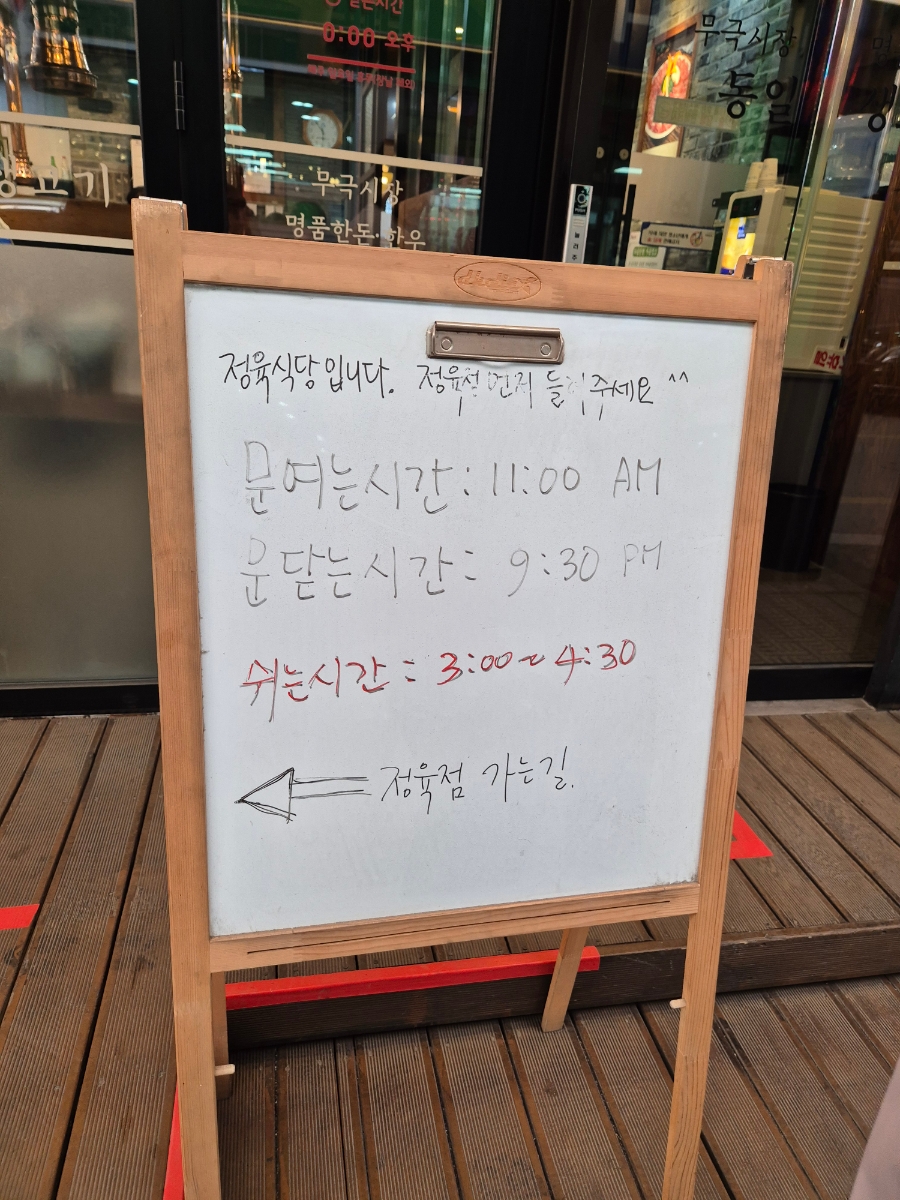 닫는시간
0:00 오후
무극시장
동일
무극시장
명품한돈·한우
고기
정육식당입니다. 정육점 먼저 들러주세요 ^^
문여는시간: 11:00 AM
문닫는시간: 9:30 PM
쉬는시간: 3:00~4:30
정육점 가는길.